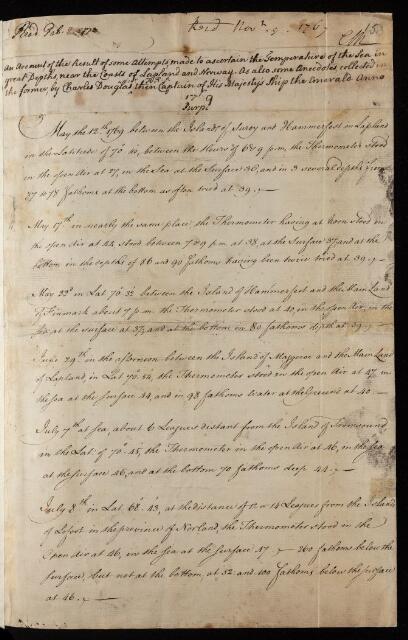 Read Nov.r 9. 1769
An Account of the Result of some Attempts made to ascertain the Temperature of the Sea in
great Depths, near the Coasts of Lapland and Norway. As also some Anecdotes collected in
the former by Charles Douglas then Captain of His Majestys Ship the Emerald Anno
1769
May the 12th 1769 between the Islands of Suroy and Hammerfest in Lapland
in the Latitude of 70°. 40', between the Hours of 6 & 9 p.m. the Thermometer stood
in the open Air at 27, in the Sea at the Surface 36, and in 3 several depths from
to 78 fathoms at the bottom as often tried at 39.
May 17th in nearly the same place the Thermometer having at Noon stood in
the open Air at 44 stood between 7 & 9 p.m. at 38, at the Surface 37, and at the
bottom in the depths of 86 and 90 fathoms having been twice tried at 39.
May 22d in Lat 70°. between the Island of Hammerfest and the Main Land
of Finmark about 7 p.m. the Thermometer stood at 40 in the open Air, in the
Sea at the surface at 37, and at the bottom in 80 fathoms depth at 39.
June 29th in the afternoon between the Island of Maggeroe and the Main Land
of Lapland, in Lat 70°. 54', the Thermometer stood in the open Air at 47, in
the sea at the Surface 44, and in 98 fathoms water at the Ground at 40
July 7th at Sea, about 6 Leagues distant from the Island of
in the Lat: of 70°. 45', the Thermometer in the open Air at 46, in the Sea
at the Surface 46, and at the bottom 70 fathoms deep 44.
July 8th in Lat 68°. 43', at the distance of 12 or 14 Leagues from the Island
of Lofoot in the province of Norland, the Thermometer stood in the
Open Air at 46, in the Sea at the Surface 47 260 fathoms below the
Surface, but not at the bottom, at 52 and 100 fathoms below the Surface
at 46.